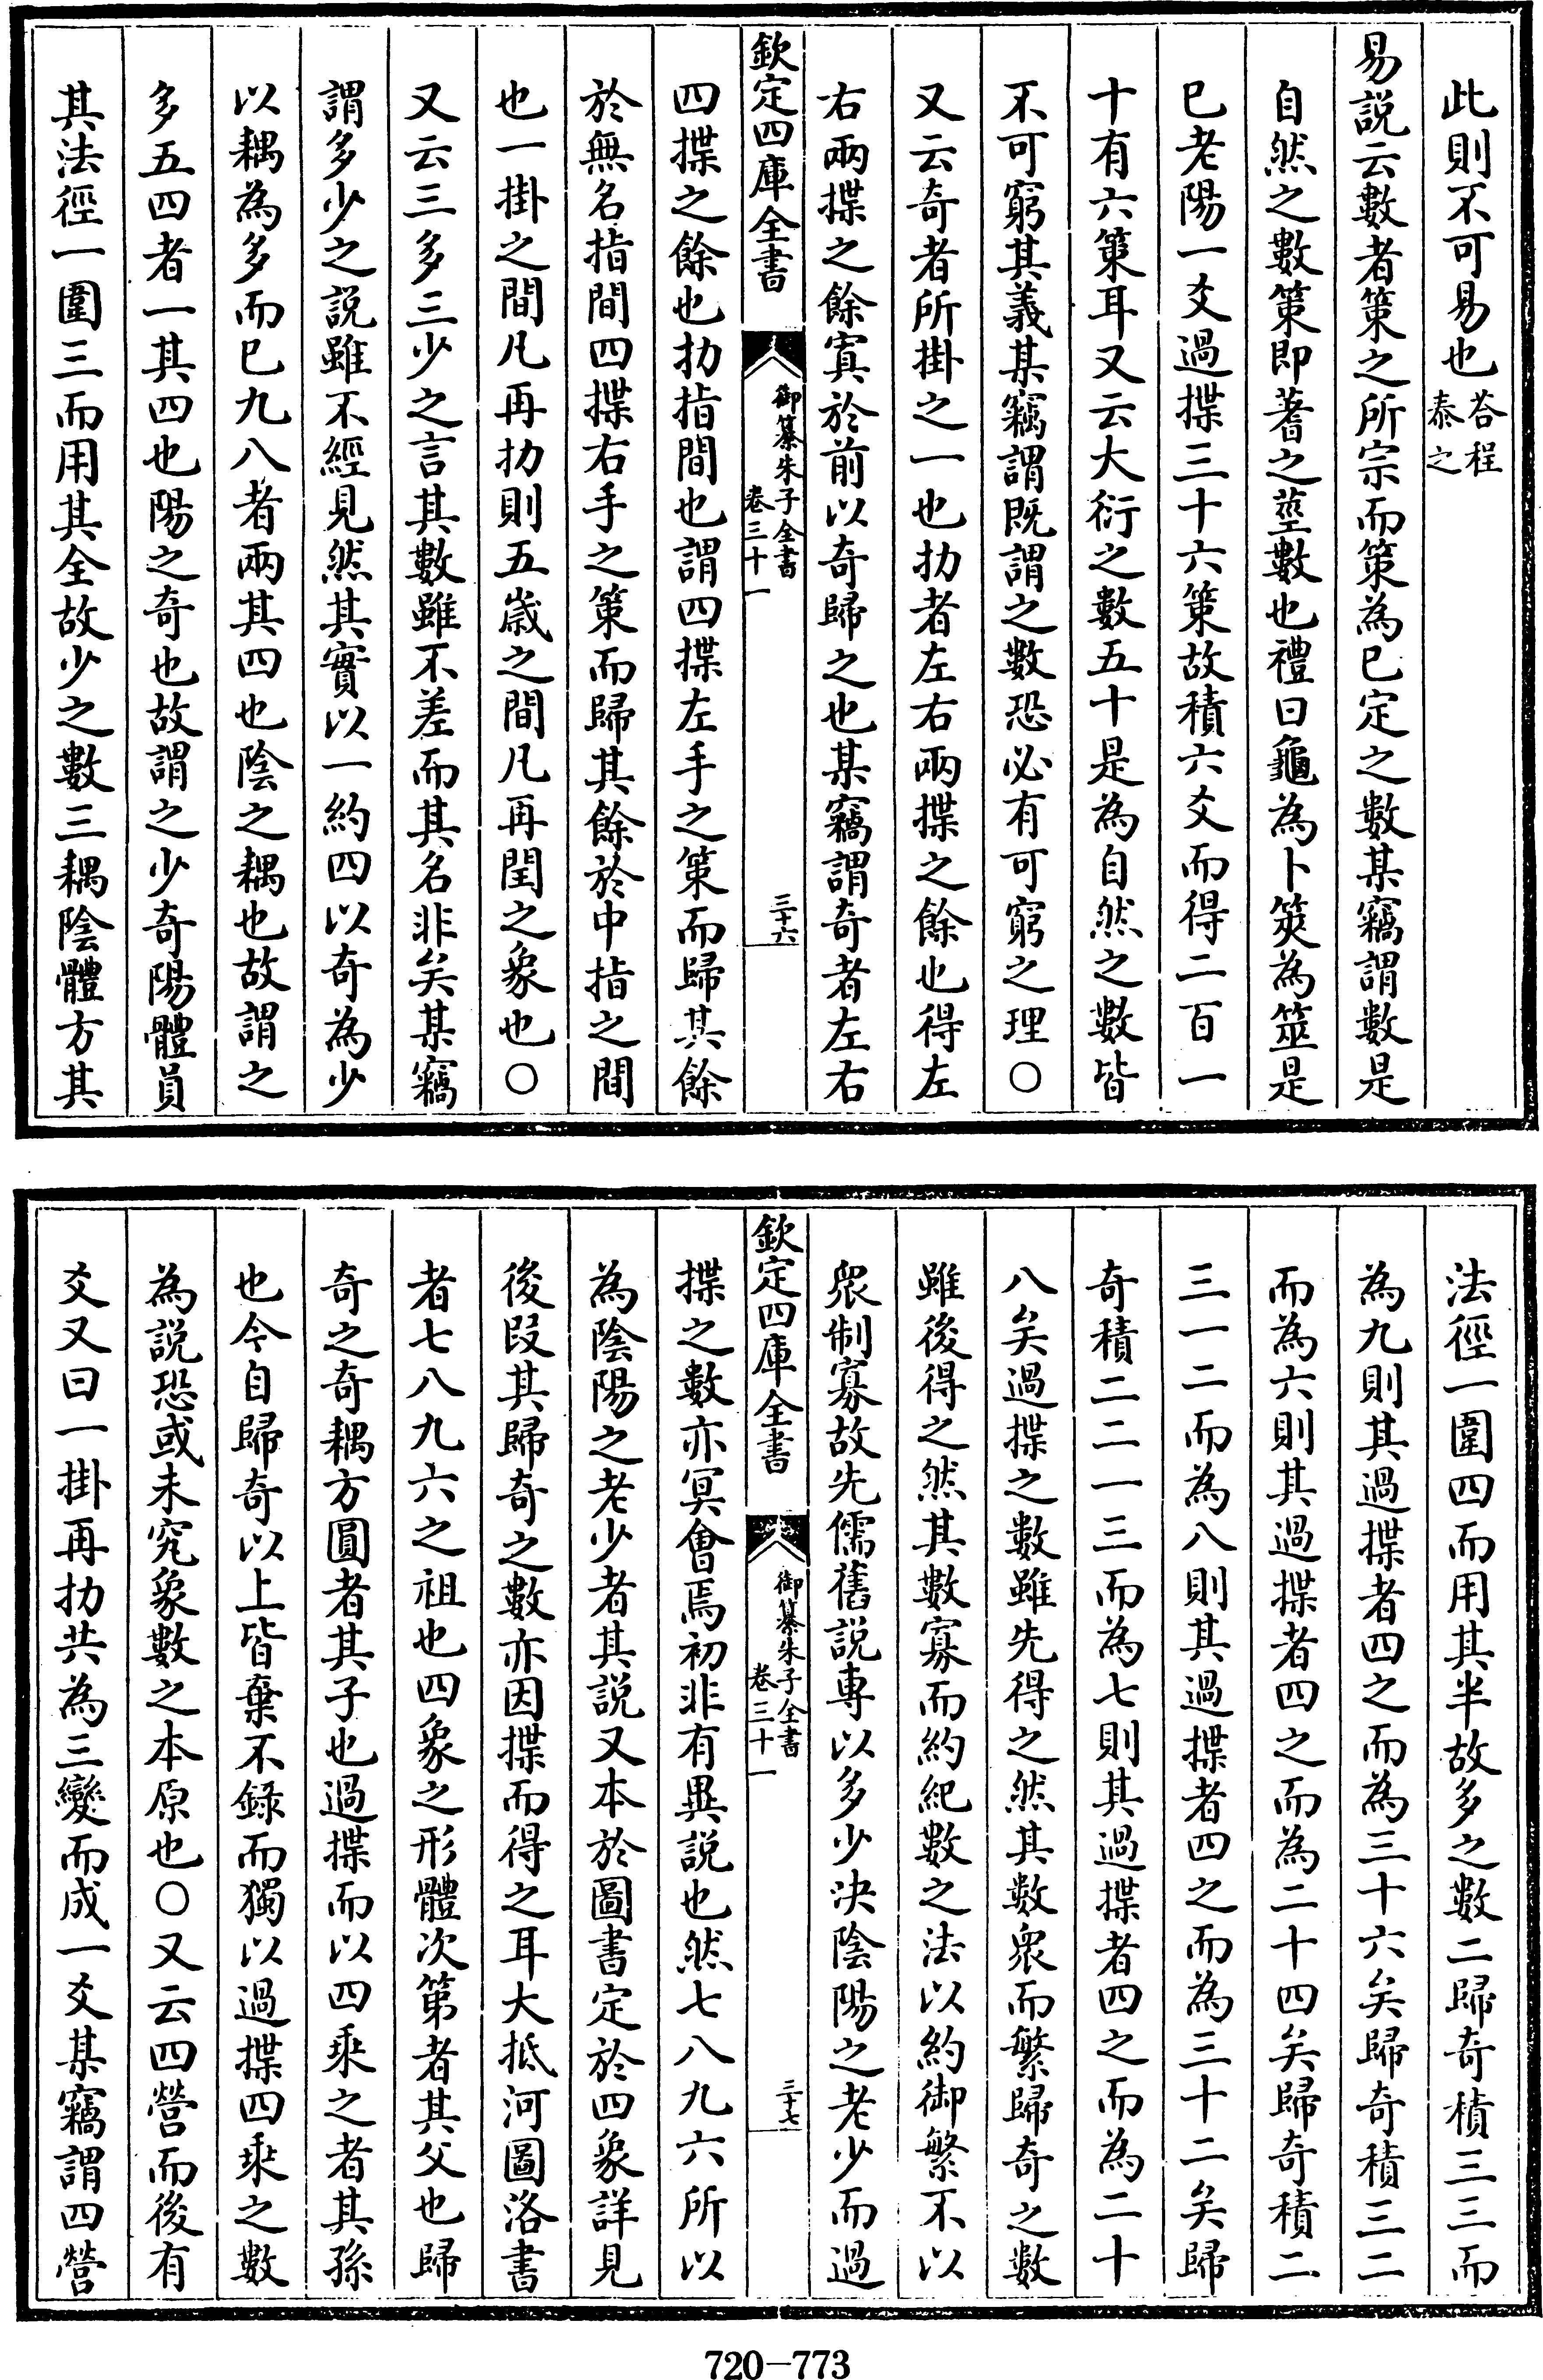 此則不可易也荅程泰之
易說云數者策之所宗而策為已定之數某竊謂數是
自然之數策即蓍之莖數也禮曰龜為卜筴為筮是
已老陽一爻過揲三十六策故積六爻而得二百一
十有六策耳又云大衍之數五十是為自然之數皆
不可窮其義某竊謂既謂之數恐必有可窮之理○
又云奇者所掛之一也扐者左右兩揲之餘也得左
右兩揲之餘寘於前以奇歸之也某竊謂奇者左右
欽定四庫全書
御纂朱子全書
卷三十一
三十六
四揲之餘也扐指間也謂四揲左手之策而歸其餘
於無名指間四揲右手之策而歸其餘於中指之間
也一掛之間凡再扐則五歲之間凡再閏之象也○
又云三多三少之言其數雖不差而其名非矣某竊
謂多少之說雖不經見然其實以一約四以奇為少
以耦為多而已九八者兩其四也陰之耦也故謂之
多五四者一其四也陽之奇也故謂之少奇陽體員
其法徑一圍三而用其全故少之數三耦陰體方其
法徑一圍四而用其半故多之數二歸奇積三三而
為九則其過揲者四之而為三十六矣歸奇積三二
而為六則其過揲者四之而為二十四矣歸奇積二
三一二而為八則其過揲者四之而為三十二矣歸
奇積二二一三而為七則其過揲者四之而為二十
八矣過揲之數雖先得之然其數衆而繁歸奇之數
雖後得之然其數寡而約紀數之法以約御繁不以
衆制寡故先儒舊說專以多少決陰陽之老少而過
欽定四庫全書
御纂朱子全書
卷三十一
三十七
揲之數亦冥會焉初非有異說也然七八九六所以
為陰陽之老少者其說又本於圖書定於四象詳見
後段其歸奇之數亦因揲而得之耳大抵河圖洛書
者七八九六之祖也四象之形體次第者其父也歸
奇之奇耦方圓者其子也過揲而以四乘之者其孫
也今自歸奇以上皆棄不錄而獨以過揲四乘之數
為說恐或未究象數之本原也○又云四營而後有
爻又曰一掛再扐共為三變而成一爻某竊謂四營
720-773